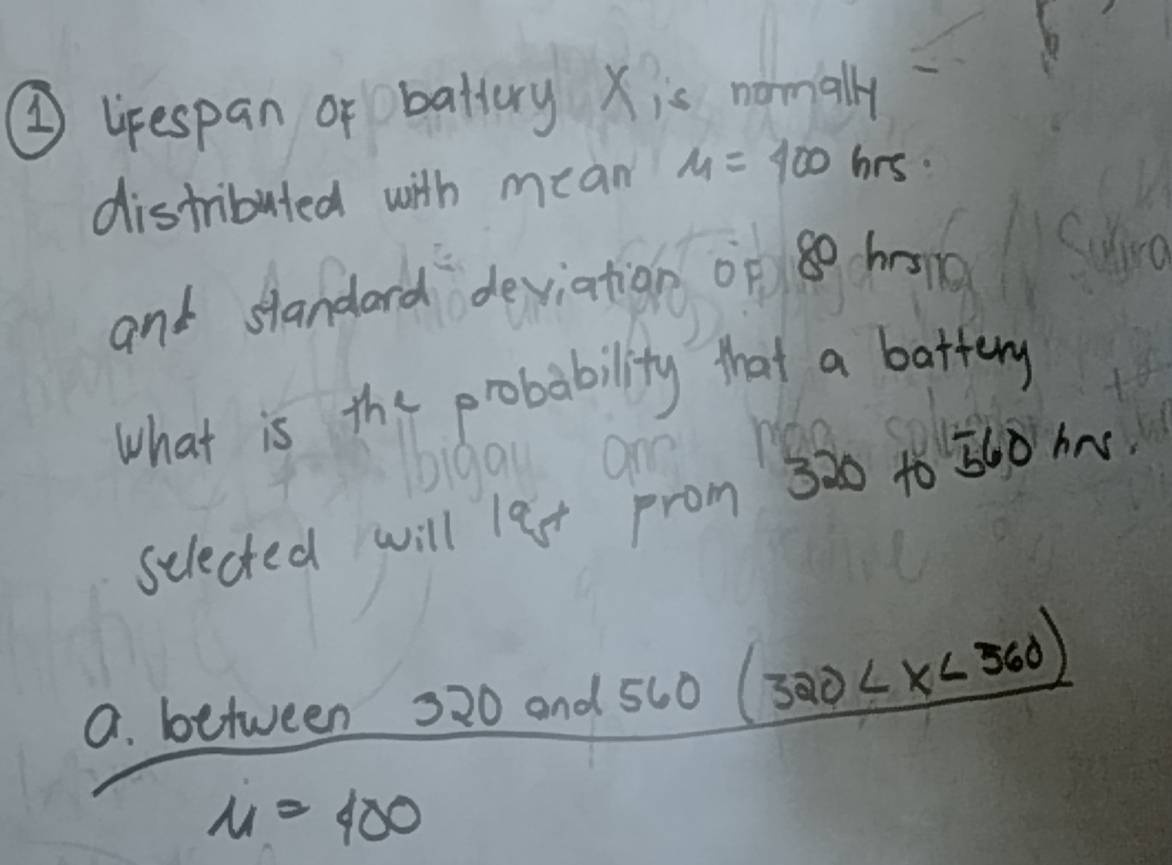 ① Lifespan of battery X is normally
distributed with mean μ = 400 hrs.
and standard deviation of 80 hrs
what is the probability that a battery
selected will last from 320 to 560 hrs.
a. between 320 and 560 (320 < x < 560)
μ = 400